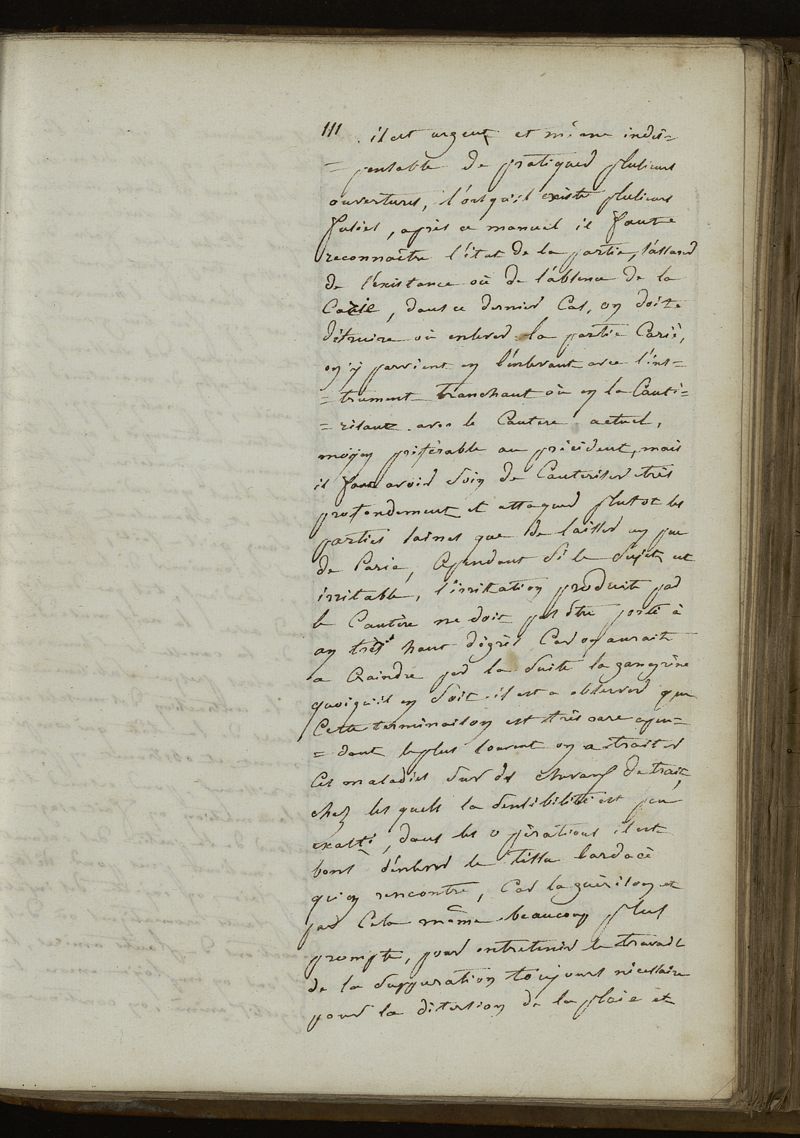 111 . il est urgent et même indis=
= pensable de pratiquer plusieurs
ouvertures, l'orsqu'il existe plusieurs
fusies, après ce manuel il faut
reconnaitre l'état de la partie, s'assurer
de l'existance où de l'absence de la
Carie, dans ce dernier Cas, on doit
détruire où enlever la partie Carié,
on y parvient en l'enlevant avec l'ins=
= trument tranchant où en la Cauti=
= risant avec le Cautere actuel,
moyen préférable au précident, mais
il faut avoir soin de Cauteriser très
profondement et attaquer plutot les
parties saines que de laisser un peu
de Carie, Cependant si le sujet est
irritable, l'irritation produit par
le Cautère ne doit pas être porté à
un très haut dégrès Car on aurait
a Craindre par la suite la gangrène
quoiqu'il en soit il est a observer que
Cette terminaison est très rare cepen=
= dant le plus souvent on a traiter
Ces maladies sur des chevaux de trait,
chez les quels la sensibilité est peu
exalté, dans les opérations il est
bons d'enlever le tissu lardacé
qu'on rencontre, Car la guérison est
par Cela même beaucoup plus
prompte, pour entretenir le travail
de la suppuration toujours nécessaire
pour la ditertion de la plaie et